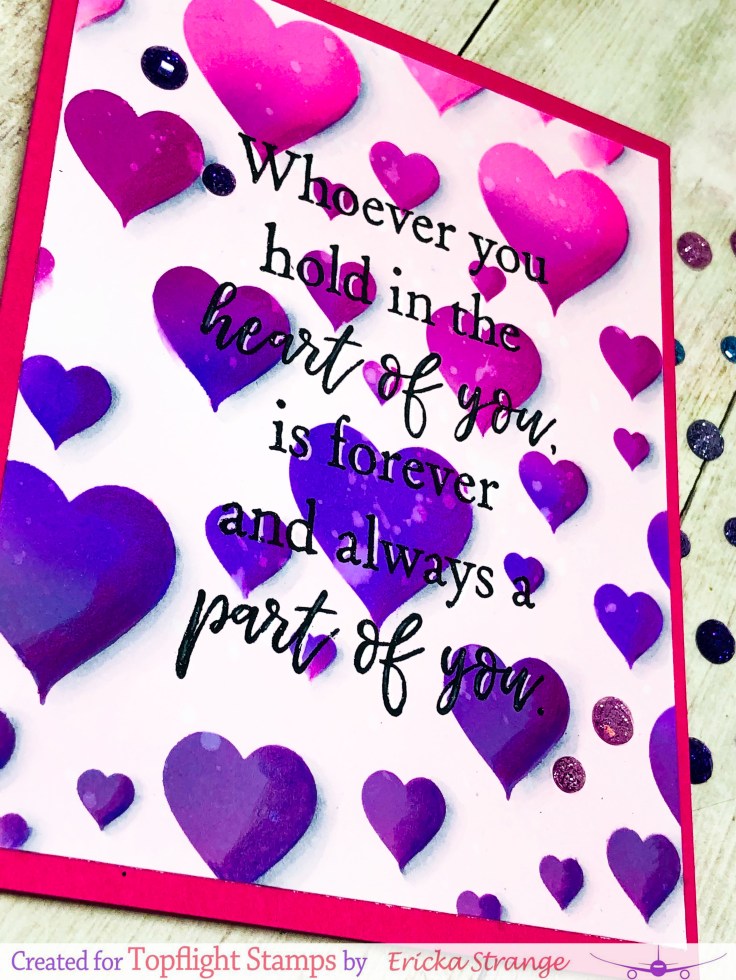 Whoever you
hold in the
heart of you,
is forever
and always a
part of you.
Created for Topflight Stamps by Ericka Strange